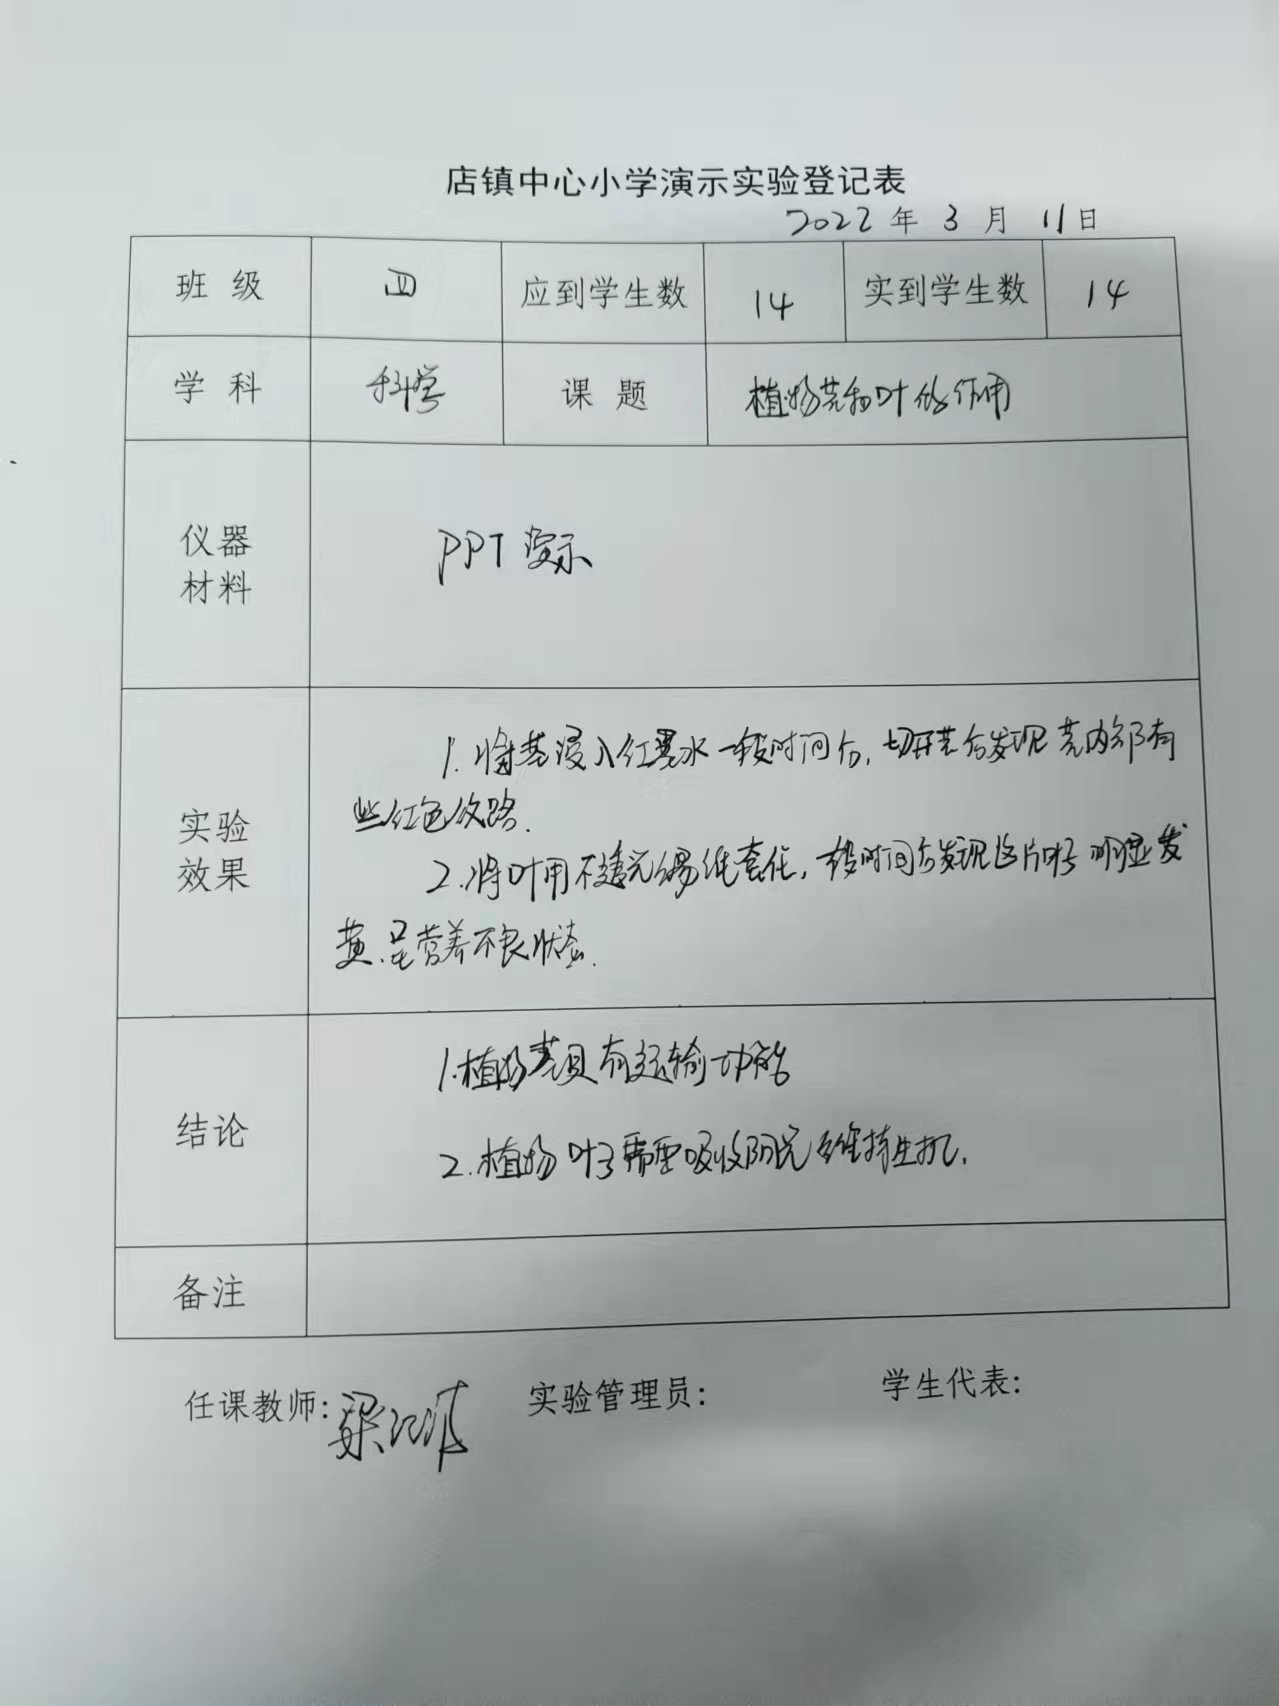 店镇中心小学演示实验登记表
2022 年 3 月 11 日
班 级 四 应到学生数 14 实到学生数 14
学 科 科学 课 题 植物茎和叶的作用
仪器
材料
PPT 演示
实验
效果
1. 将茎浸入红墨水一段时间后,切开茎后发现茎内部有
些红色纹路.
2. 将叶用不透光锡纸套住,一段时间后发现这片叶子明显发
黄.呈营养不良状态.
结论
1.植物茎具有运输功能
2.植物叶子需要吸收阳光维持生机.
备注
任课教师: 梁 实验管理员: 学生代表: